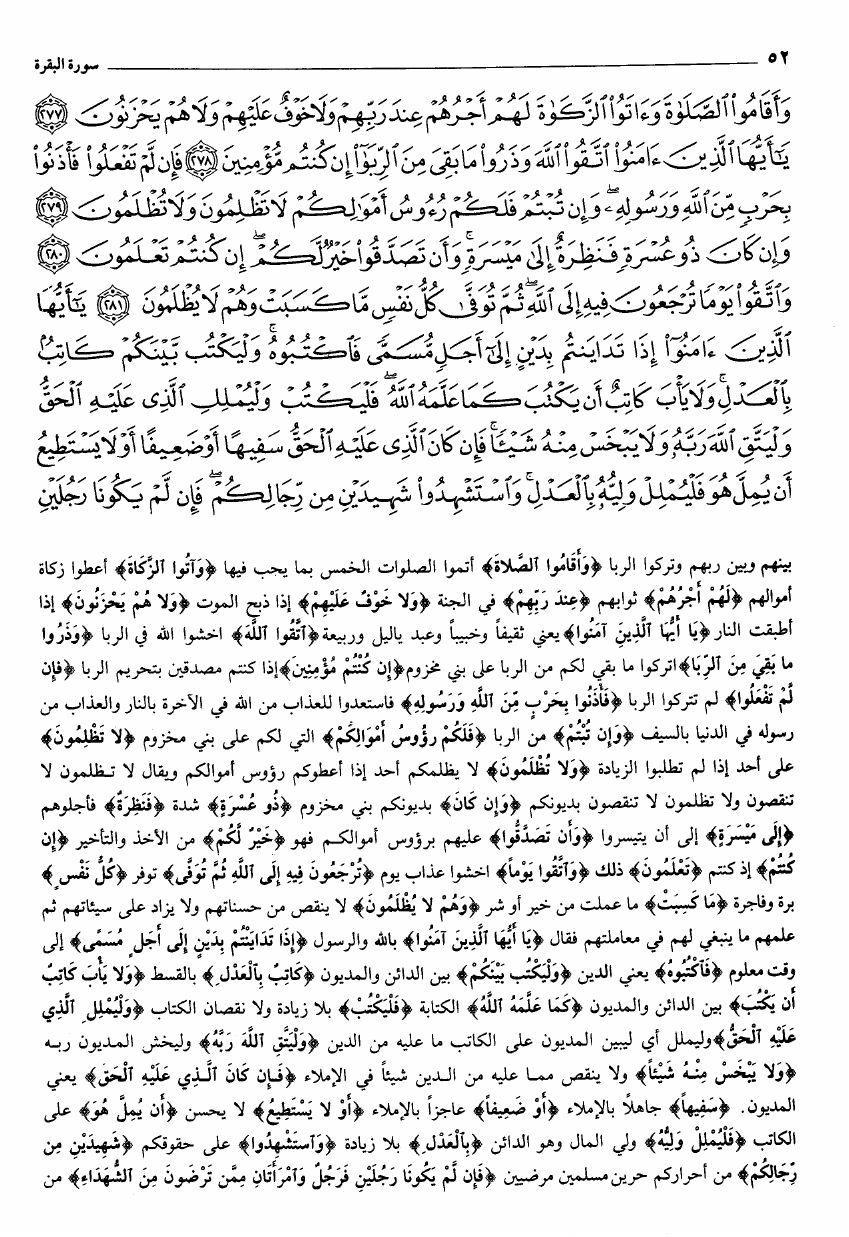 ٥٢ سورة البقرة
وَأَقَامُوا۟ ٱلصَّلَوٰةَ وَءَاتَوُا۟ ٱلزَّكَوٰةَ لَهُمْ أَجْرُهُمْ عِندَ رَبِّهِمْ وَلَا خَوْفٌ عَلَيْهِمْ وَلَا هُمْ يَحْزَنُونَ ﴿٢٧٧﴾
يَٰٓأَيُّهَا ٱلَّذِينَ ءَامَنُوا۟ ٱتَّقُوا۟ ٱللَّهَ وَذَرُوا۟ مَا بَقِىَ مِنَ ٱلرِّبَوٰٓا۟ إِن كُنتُم مُّؤْمِنِينَ ﴿٢٧٨﴾ فَإِن لَّمْ تَفْعَلُوا۟ فَأْذَنُوا۟
بِحَرْبٍ مِّنَ ٱللَّهِ وَرَسُولِهِۦ ۖ وَإِن تُبْتُمْ فَلَكُمْ رُءُوسُ أَمْوَٰلِكُمْ لَا تَظْلِمُونَ وَلَا تُظْلَمُونَ ﴿٢٧٩﴾
وَإِن كَانَ ذُو عُسْرَةٍ فَنَظِرَةٌ إِلَىٰ مَيْسَرَةٍ ۚ وَأَن تَصَدَّقُوا۟ خَيْرٌ لَّكُمْ ۖ إِن كُنتُمْ تَعْلَمُونَ ﴿٢٨٠﴾
وَٱتَّقُوا۟ يَوْمًا تُرْجَعُونَ فِيهِ إِلَى ٱللَّهِ ۖ ثُمَّ تُوَفَّىٰ كُلُّ نَفْسٍ مَّا كَسَبَتْ وَهُمْ لَا يُظْلَمُونَ ﴿٢٨١﴾ يَٰٓأَيُّهَا
ٱلَّذِينَ ءَامَنُوٓا۟ إِذَا تَدَايَنتُم بِدَيْنٍ إِلَىٰٓ أَجَلٍ مُّسَمًّى فَٱكْتُبُوهُ ۚ وَلْيَكْتُب بَّيْنَكُمْ كَاتِبٌۢ
بِٱلْعَدْلِ ۚ وَلَا يَأْبَ كَاتِبٌ أَن يَكْتُبَ كَمَا عَلَّمَهُ ٱللَّهُ ۚ فَلْيَكْتُبْ وَلْيُمْلِلِ ٱلَّذِى عَلَيْهِ ٱلْحَقُّ
وَلْيَتَّقِ ٱللَّهَ رَبَّهُۥ وَلَا يَبْخَسْ مِنْهُ شَيْـًٔا ۚ فَإِن كَانَ ٱلَّذِى عَلَيْهِ ٱلْحَقُّ سَفِيهًا أَوْ ضَعِيفًا أَوْ لَا يَسْتَطِيعُ
أَن يُمِلَّ هُوَ فَلْيُمْلِلْ وَلِيُّهُۥ بِٱلْعَدْلِ ۚ وَٱسْتَشْهِدُوا۟ شَهِيدَيْنِ مِن رِّجَالِكُمْ ۖ فَإِن لَّمْ يَكُونَا رَجُلَيْنِ
بينهم وبين ربهم وتركوا الربا ﴿وَأَقَامُوا ٱلصَّلاةَ﴾ أتموا الصلوات الخمس بما يجب فيها ﴿وَآتُوا ٱلزَّكَاةَ﴾ أعطوا زكاة
أموالهم ﴿لَهُمْ أَجْرُهُمْ﴾ ثوابهم ﴿عِندَ رَبِّهِمْ﴾ في الجنة ﴿وَلا خَوْفٌ عَلَيْهِمْ﴾ إذا ذبح الموت ﴿وَلا هُمْ يَحْزَنُونَ﴾ إذا
أطبقت النار ﴿يَا أَيُّهَا ٱلَّذِينَ آمَنُوا﴾ يعني ثقيفاً وخبيباً وعبد ياليل وربيعة ﴿ٱتَّقُوا ٱللَّهَ﴾ اخشوا الله في الربا ﴿وَذَرُوا
ما بَقِيَ مِنَ ٱلرِّبَا﴾ اتركوا ما بقي لكم من الربا على بني مخزوم ﴿إِن كُنْتُم مُؤْمِنِينَ﴾ إذا كنتم مصدقين بتحريم الربا ﴿فَإِن
لَّمْ تَفْعَلُوا﴾ لم تتركوا الربا ﴿فَأْذَنُوا بِحَرْبٍ مِّنَ ٱللَّهِ وَرَسُولِهِ﴾ فاستعدوا للعذاب من الله في الآخرة بالنار والعذاب من
رسوله في الدنيا بالسيف ﴿وَإِن تُبْتُمْ﴾ من الربا ﴿فَلَكُمْ رؤُوسُ أَمْوَالِكُمْ﴾ التي لكم على بني مخزوم ﴿لا تَظْلِمُونَ﴾
على أحد إذا لم تطلبوا الزيادة ﴿وَلا تُظْلَمُونَ﴾ لا يظلمكم أحد إذا أعطوكم رؤوس أموالكم ويقال لا تـظلمون لا
تنقصون ولا تظلمون لا تنقصون بديونكم ﴿وَإِن كَانَ﴾ بديونكم بني مخزوم ﴿ذُو عُسْرَةٍ﴾ شدة ﴿فَنَظِرَةٌ﴾ فأجلوهم
﴿إِلَى مَيْسَرَةٍ﴾ إلى أن يتيسروا ﴿وَأَن تَصَدَّقُوا﴾ عليهم برؤوس أموالكـم فهو ﴿خَيْرٌ لَّكُمْ﴾ من الأخذ والتأخير ﴿إِن
كُنْتُمْ﴾ إذ كنتم ﴿تَعْلَمُونَ﴾ ذلك ﴿وَٱتَّقُوا يَوْماً﴾ اخشوا عذاب يوم ﴿تُرْجَعُونَ فِيهِ إِلَى ٱللَّهِ ثُمَّ تُوَفَّى﴾ توفر ﴿كُلُّ نَفْسٍ﴾
برة وفاجرة ﴿مَا كَسِبَتْ﴾ ما عملت من خير أو شر ﴿وَهُمْ لا يُظْلَمُونَ﴾ لا ينقص من حسناتهم ولا يزاد على سيئاتهم ثم
علمهم ما ينبغي لهم في معاملتهم فقال ﴿يَا أَيُّهَا ٱلَّذِينَ آمَنُوا﴾ بالله والرسول ﴿إِذَا تَدَايَنْتُمْ بِدَيْنٍ إِلَى أَجَلٍ مُسَمًى﴾ إلى
وقت معلوم ﴿فَٱكْتُبُوهُ﴾ يعني الدين ﴿وَلْيَكْتُب بَيْنَكُمْ﴾ بين الدائن والمديون ﴿كَاتِبٌ بِٱلْعَدْلِ﴾ بالقسط ﴿وَلا يَأْبَ كَاتِبٌ
أَن يَكْتُبَ﴾ بين الدائن والمديون ﴿كَمَا عَلَّمَهُ ٱللَّهُ﴾ الكتابة ﴿فَلْيَكْتُبْ﴾ بلا زيادة ولا نقصان الكتاب ﴿وَلْيُمْلِلِ ٱلَّذِي
عَلَيْهِ ٱلْحَقُّ﴾ وليملل أي ليبين المديون على الكاتب ما عليه من الدين ﴿وَلْيَتَّقِ ٱللَّهَ رَبَّهُ﴾ وليخش المديون ربه
﴿وَلا يَبْخَسْ مِنْهُ شَيْئاً﴾ ولا ينقص ممـا عليه من الـدين شيئاً في الإملاء ﴿فَـإِن كَانَ ٱلَّـذِي عَلَيْهِ ٱلْحَقّ﴾ يعني
المديون. ﴿سَفِيهاً﴾ جاهلاً بالإملاء ﴿أَوْ ضَعِيفاً﴾ عاجزاً بالإملاء ﴿أَوْ لا يَسْتَطِيعُ﴾ لا يحسن ﴿أَن يُمِلَّ هُوَ﴾ على
الكاتب ﴿فَلْيُمْلِلْ وَلِيُّهُ﴾ ولي المال وهو الدائن ﴿بِٱلْعَدْلِ﴾ بلا زيادة ﴿وَٱسْتَشْهِدُوا﴾ على حقوقكم ﴿شَهِيدَيْنِ مِن
رِّجَالِكُمْ﴾ من أحراركم حرين مسلمين مرضيين ﴿فَإِن لَّمْ يَكُونَا رَجُلَيْنِ فَرَجُلٌ وَٱمْرَأَتَانِ مِمَّن تَرْضَونَ مِنَ ٱلشُّهَدَاءِ﴾ من